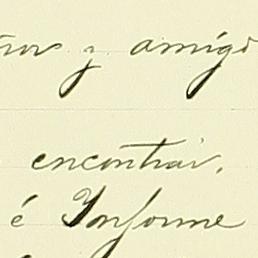 y amigo
encontrai.
é Informe